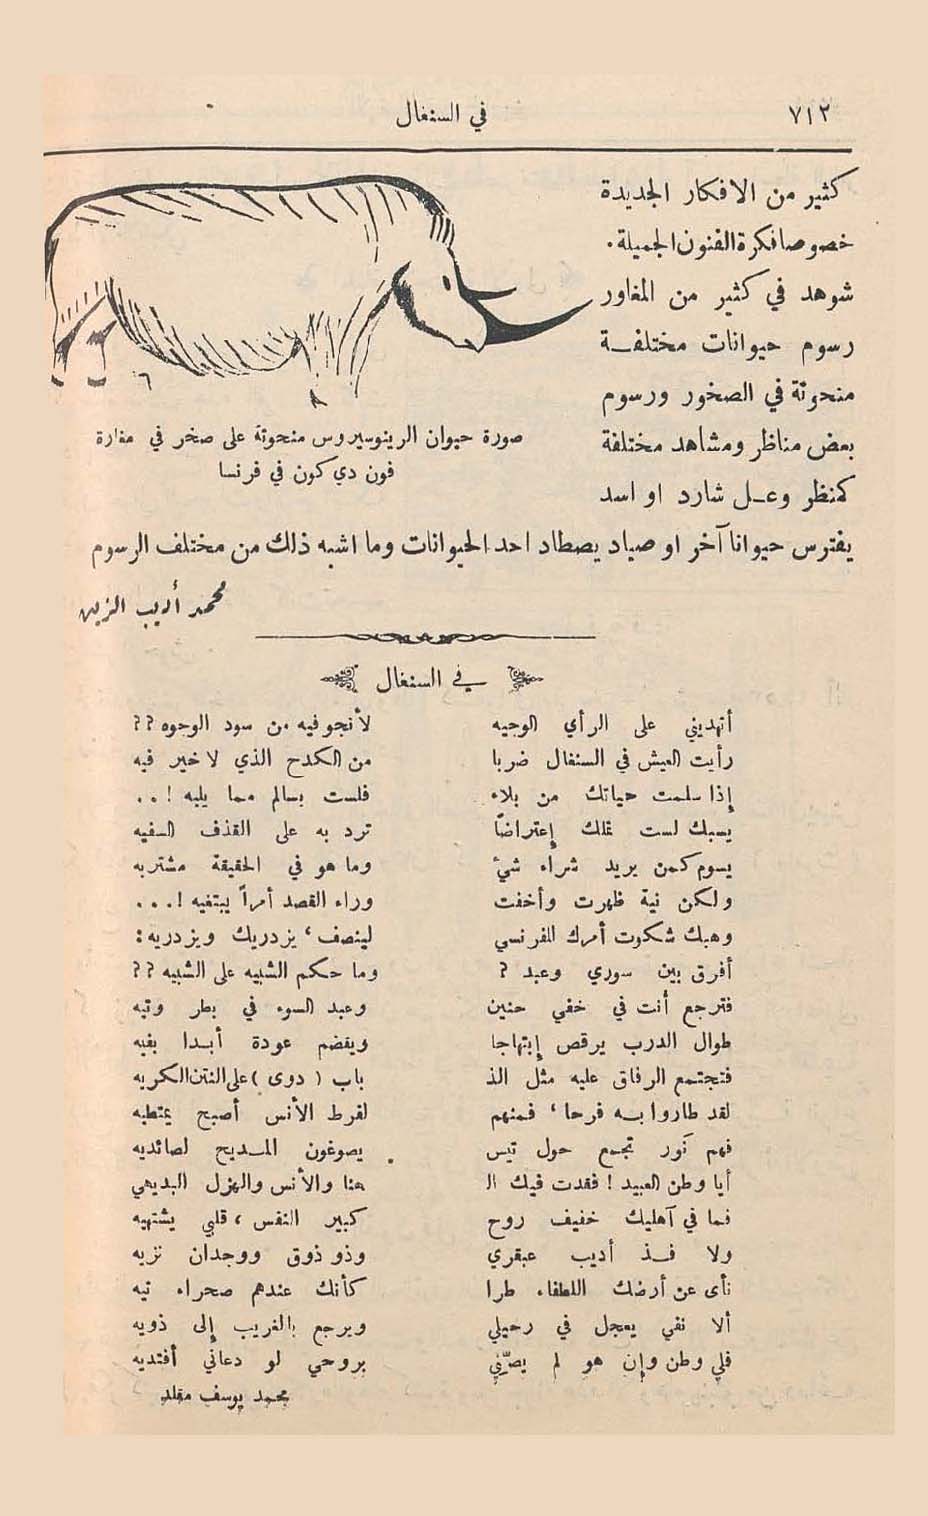 ٧١٢ في السنغال
كثير من الافكار الجديدة
خصوصا فكرة الفنون الجميلة.
شوهد في كثير من المغاور
رسوم حيوانات مختلفـة
منحوتة في الصخور ورسوم
بعض مناظر ومشاهد مختلفة
كمنظر وعـل شارد او اسد
صورة حيوان الرينوسيروس منحوتة على صخر في مغارة
فون دي كون في فرنسا
يفترس حيوانا آخر او صياد يصطاد احد الحيوانات وما اشبه ذلك من مختلف الرسوم
محمد أديب الزين
في السنغال
أتهديني على الرأي الوجيه لأنجو فيه من سود الوجوه ??
رأيت العيش في السنغال ضربا من الكدح الذي لا خير فيه
إذا سلمت حياتك من بلاء فلست بسالم مما يليه ! . .
يسبك لست تملك إعتراضاً ترد به على القذف السفيه
يسوم كمن يريد شراء شيء وما هو في الحقيقة مشتريه
ولكن نية ظهرت وأخفت وراء القصد أمراً يبتغيه ! . . .
وهبك شكوت أمرك للفرنسي لينصف ، يزدريك ويزدريه :
أفرق بين سوري وعبد ? وما حكم الشبيه على الشبيه ??
فترجع أنت في خفي حنين وعبد السوء في بطر وتيه
طوال الدرب يرقص إبتهاجا ويقضم عودة أبـدا بفيه
فتجتمع الرفاق عليه مثل الذ باب ( دوى ) على النتن الكريه
لقد طاروا بـه فرحا ، فمنهم لفرط الأنس أصبح يمتطيه
فهم نَور تجمع حول تيس يصوغون المـديح لصائديه
أيا وطن العبيد ! فقدت فيك الـ هنا والأنس والهزل البديهي
فما في آهليك خفيف روح كبير النفس ، قلبي يشتهيه
ولا فـذ أديب عبقري وذو ذوق ووجدان نزيه
نأى عن أرضك اللطفاء طرا كأنك عندهم صحراء تيه
ألا نفي يعجل في رحيلي ويرجع بالغريب إلى ذويه
فلي وطن وإن هو لم يصنّي بروحي لو دعاني أفتديه
محمد يوسف مقلد